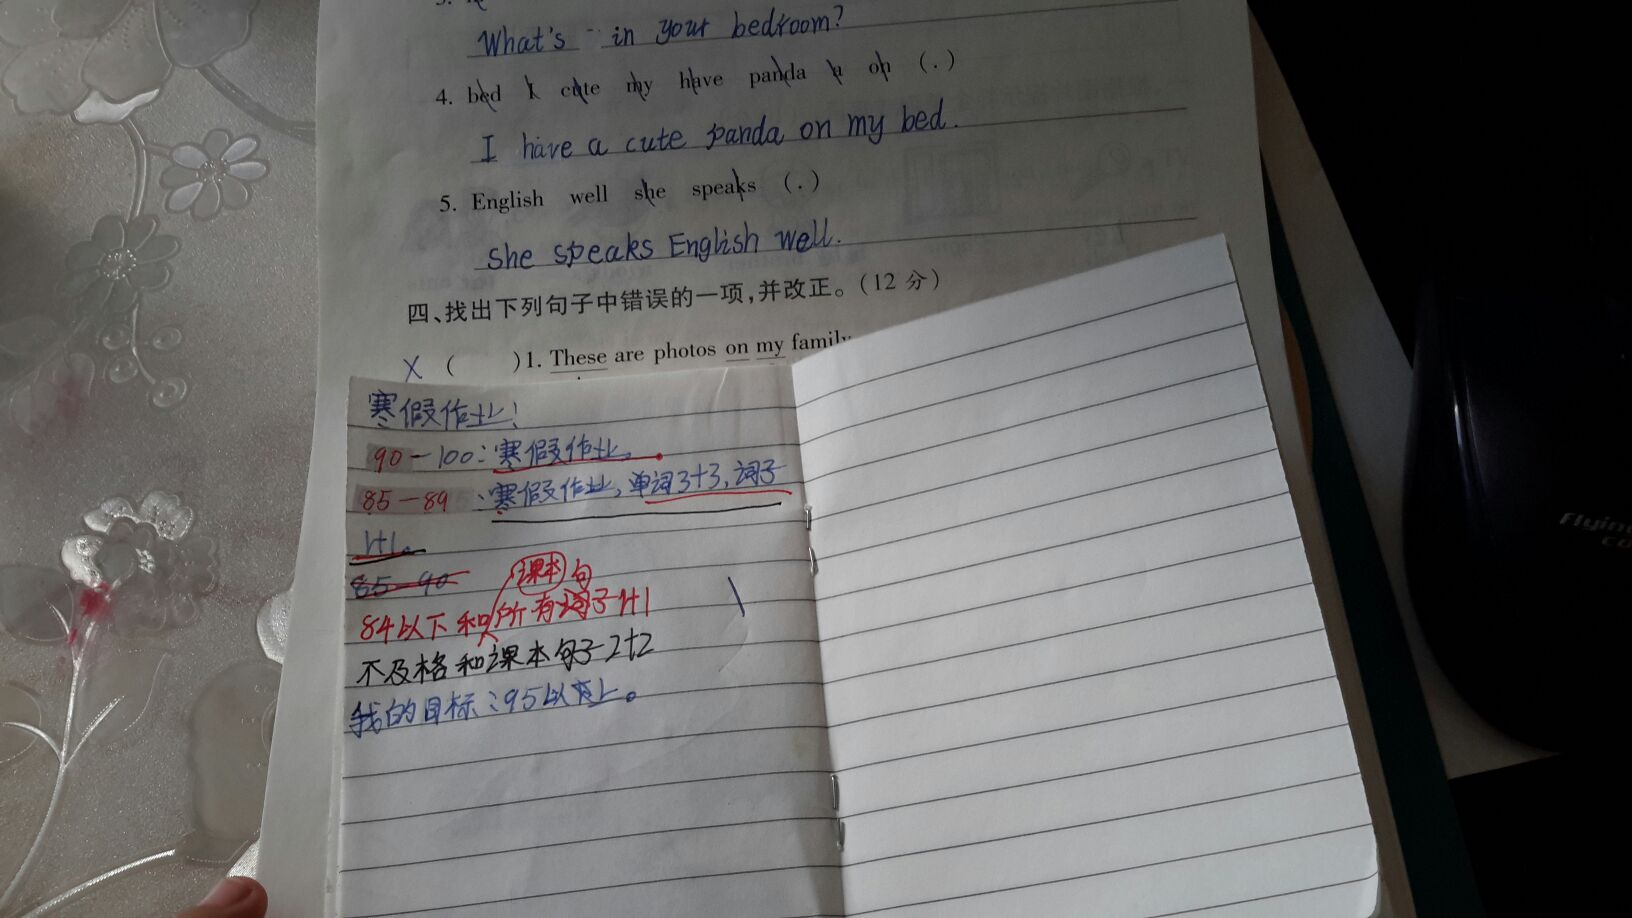 What's in your bedroom?
4. bed I cute my have panda a on (.)
I have a cute panda on my bed.
5. English well she speaks (.)
She speaks English well.
四、找出下列句子中错误的一项,并改正。(12 分)
X ( )1. These are photos on my family
寒假作业:
90-100:寒假作业。
85-89:寒假作业,单词3+3,词子
1+1。
85-90
课本 句
84以下和所有词子1+1
不及格和课本句子2+2
我的目标:95以上。
Flying